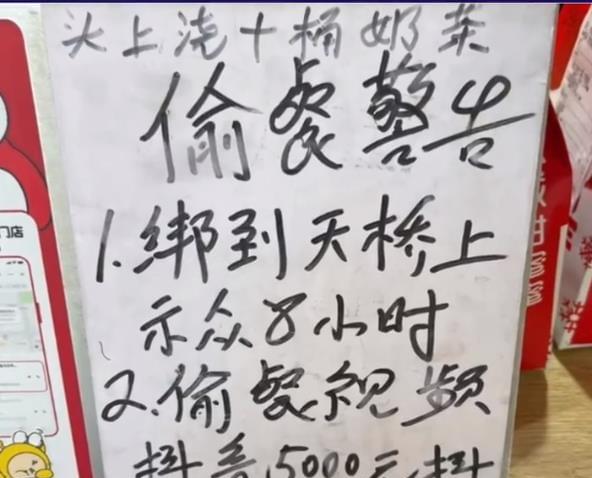 头上浇十桶奶茶
偷餐警告
1.绑到天桥上
示众8小时
2.偷餐视频
抖音5000元抖
门店